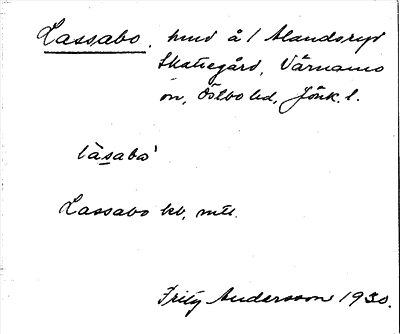 Lassabo, hmd å/ Alandsryd
Skattegård, Värnamo
sn, Östbo hd, Jönk. l.
làsabo'
Lassabo kb, mtl.
Fritz Andersson 1930.